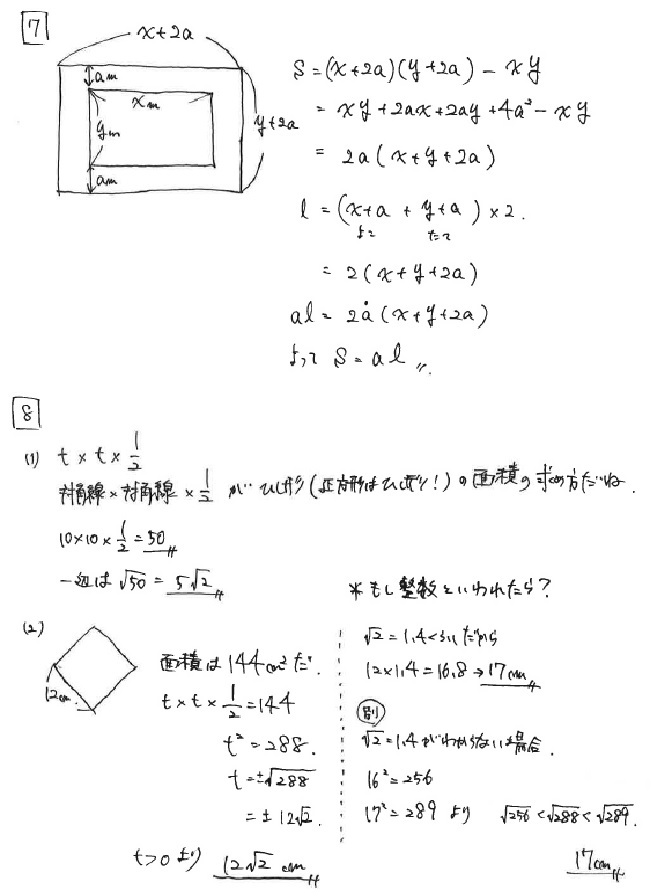 7
x+2a
am
xm
ym
y+2a
am
S=(x+2a)(y+2a)-xy
=xy+2ax+2ay+4a²-xy
=2a(x+y+2a)
l=(x+a+y+a)×2.
よこ たて
=2(x+y+2a)
al=2a(x+y+2a)
よって S=al
8
(1) t×t×1/2
対角線×対角線×1/2 が ひし形(正方形はひし形!)の面積の求め方だね.
10×10×1/2=50
一辺は √50=5√2
(2)
12cm
面積は144cm²だ.
t×t×1/2=144
t²=288.
t=±√288
=±12√2.
t>0より 12√2 cm
*もし整数といわれたら?
√2=1.4くらいだから
12×1.4=16.8→17cm
別
√2=1.4がわからない場合.
16²=256
17²=289 より √256<√288<√289.
17cm